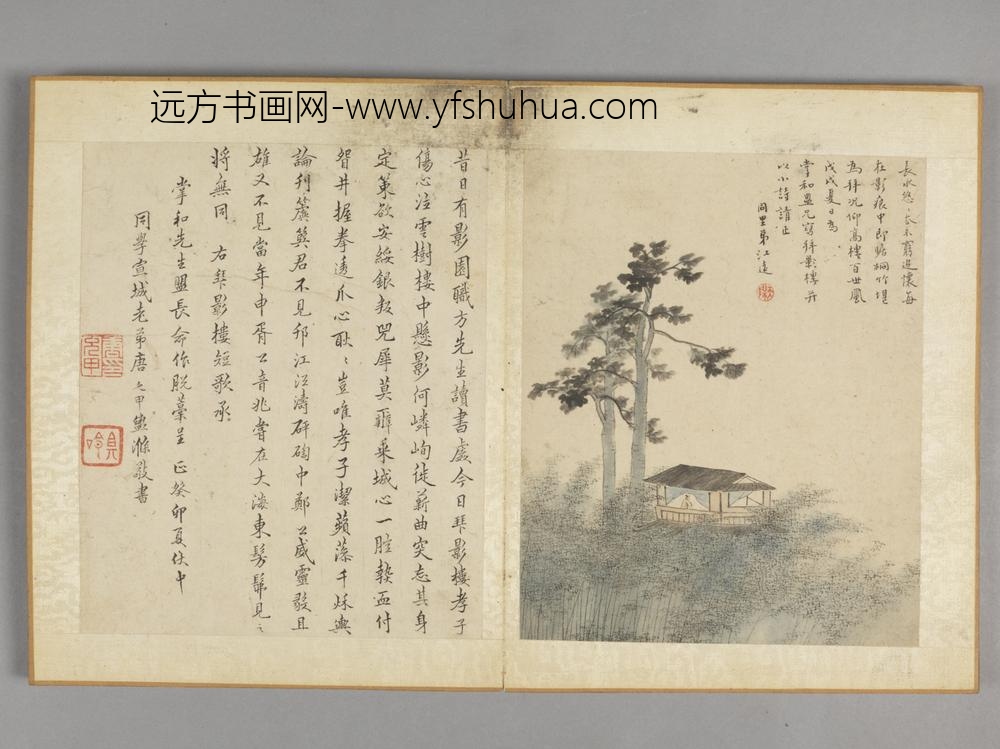 远方书画网-www.yfshuhua.com
長水悠〻長不窮進懷每
在影痕中即瞻桐竹堪
為拜況仰高樓百世風
戊戌夏日為
掌和盟兄寫拜影樓并
以小詩請正
同里弟江遠
昔日有影園職方先生讀書處今日拜影樓孝子
傷心泣雲樹樓中懸影何嶙峋徙薪曲突忘其身
定策欲安綏銀兜犀莫乘城心一腔熱血付
眢井握拳透爪心耿〻豈唯孝子潔蘋藻千秋輿
論刊篋算君不見邗江江濤砰磕中鄭公威靈毅且
雄又不見當年申胥公音兆嘗在大海東髣髴見之
將無同 右拜影樓短歌承
掌和先生盟長命作脫藁呈 正癸卯夏伏中
同學宣城老弟唐之甲盥滌敬書